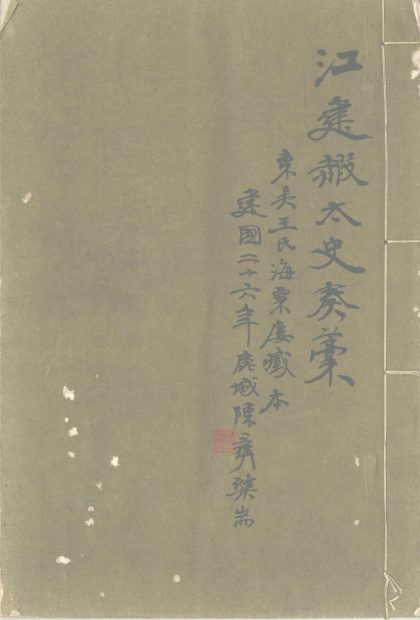 江建霞太史奏藁
東吳王氏海粟廔臧本
建國二十六年鹿城陳彝㯥耑